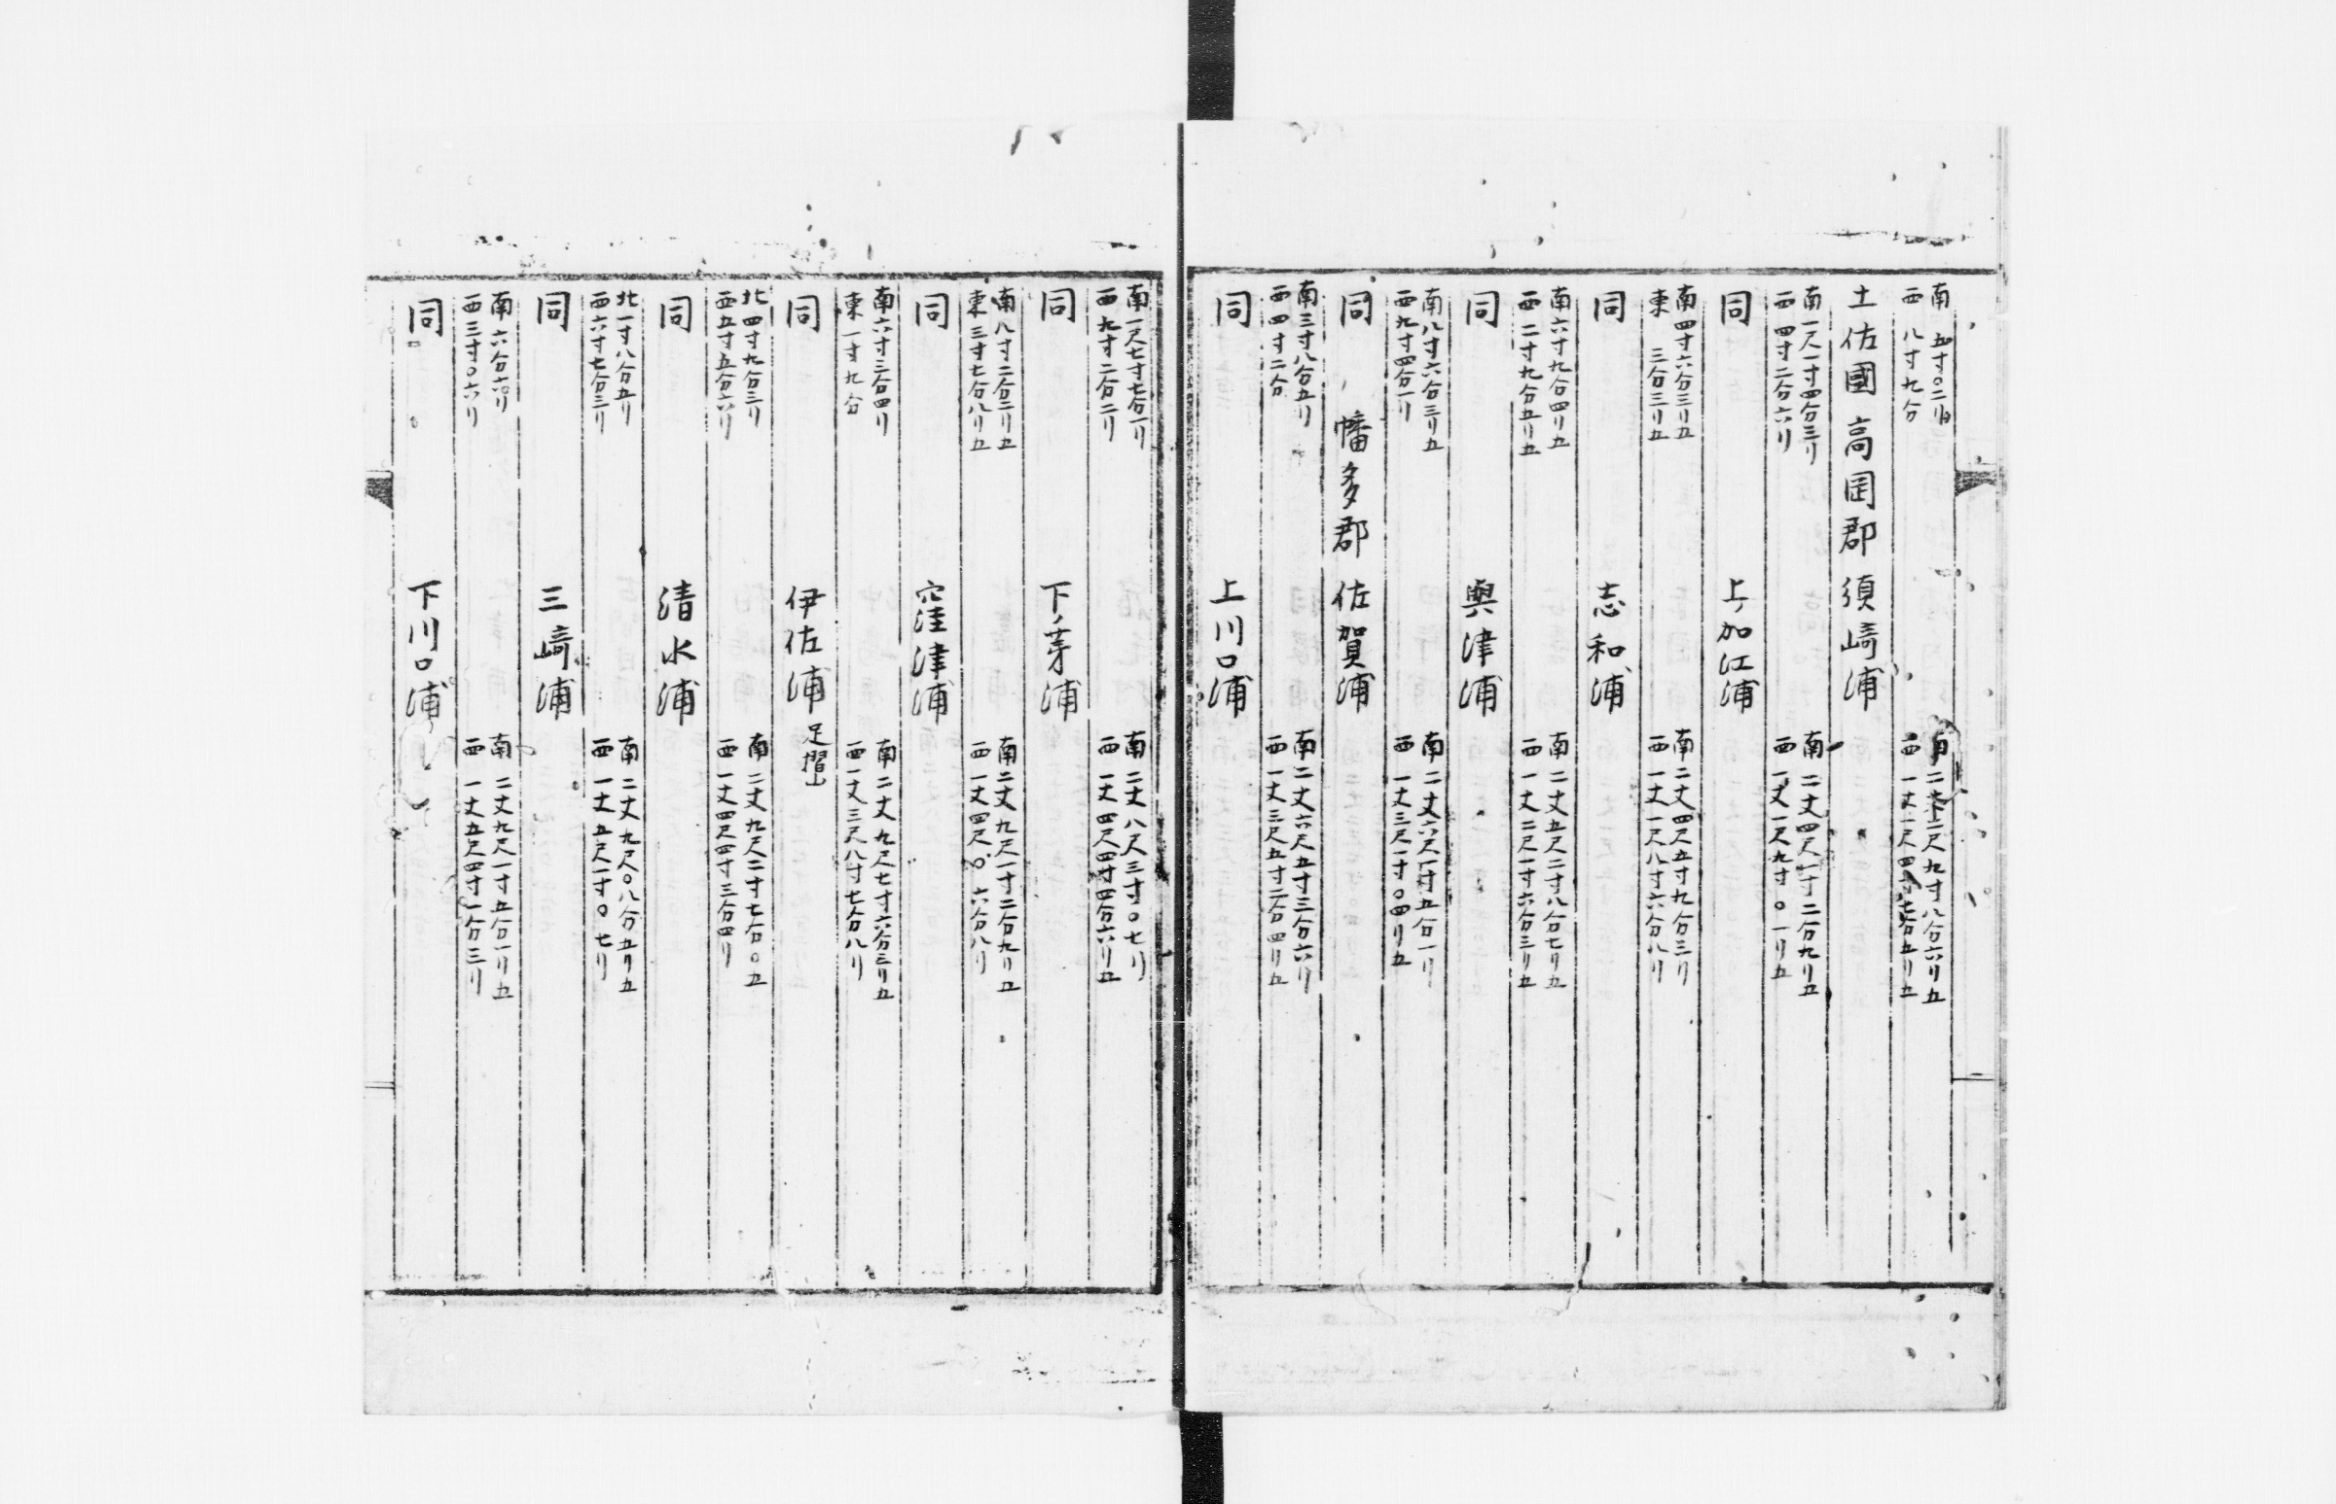 南 五寸〇二リ
西 八寸九分
南 二丈二尺九寸八分六リ五
西 一丈一尺四寸七分五リ五
土佐國 高岡郡 須﨑浦
南一尺一寸四分三リ
西 四寸二分六リ
南 二丈四尺一寸二分九リ五
西 一丈一尺九寸〇一リ五
同 上ノ加江浦
南四寸六分三リ五
東 三分三リ五
南二丈四尺五寸九分三リ
西一丈一尺八寸六分八リ
同 志和浦
南六寸九分四リ五
西二寸九分五リ五
南二丈五尺二寸八分七リ五
西一丈二尺一寸六分三リ五
同 與津浦
南八寸六分三リ五
西九寸四分一リ
南二丈六尺一寸五分一リ
西一丈三尺一寸〇四リ五
同 幡多郡 佐賀浦
南三寸八分五リ
西四寸二分
南二丈六尺五寸三分六リ
西一丈三尺五寸二分四リ五
同 上川口浦
南一尺七寸七分一リ
西九寸二分二リ
南二丈八尺三寸〇七リ
西一丈四尺四寸四分六リ五
同 下ノ芽浦
南八寸二分二リ五
東三寸七分八リ五
南二丈九尺一寸二分九リ五
西一丈四尺〇六分八リ
同 窪津浦
南六寸三分四リ
東一寸九分
南二丈九尺七寸六分三リ五
西一丈三尺八寸七分八リ
同 伊佐浦 足摺山
北四寸九分三リ
西五寸五分六リ
南二丈九尺二寸七分〇五
西一丈四尺四寸三分四リ
同 清水浦
北一寸八分五リ
西六寸七分三リ
南二丈九尺〇八分五リ五
西一丈五尺一寸〇七リ
同 三﨑浦
南六分六リ
西三寸〇六リ
南二丈九尺一寸五分一リ五
西一丈五尺四寸一分三リ
同 下川口浦